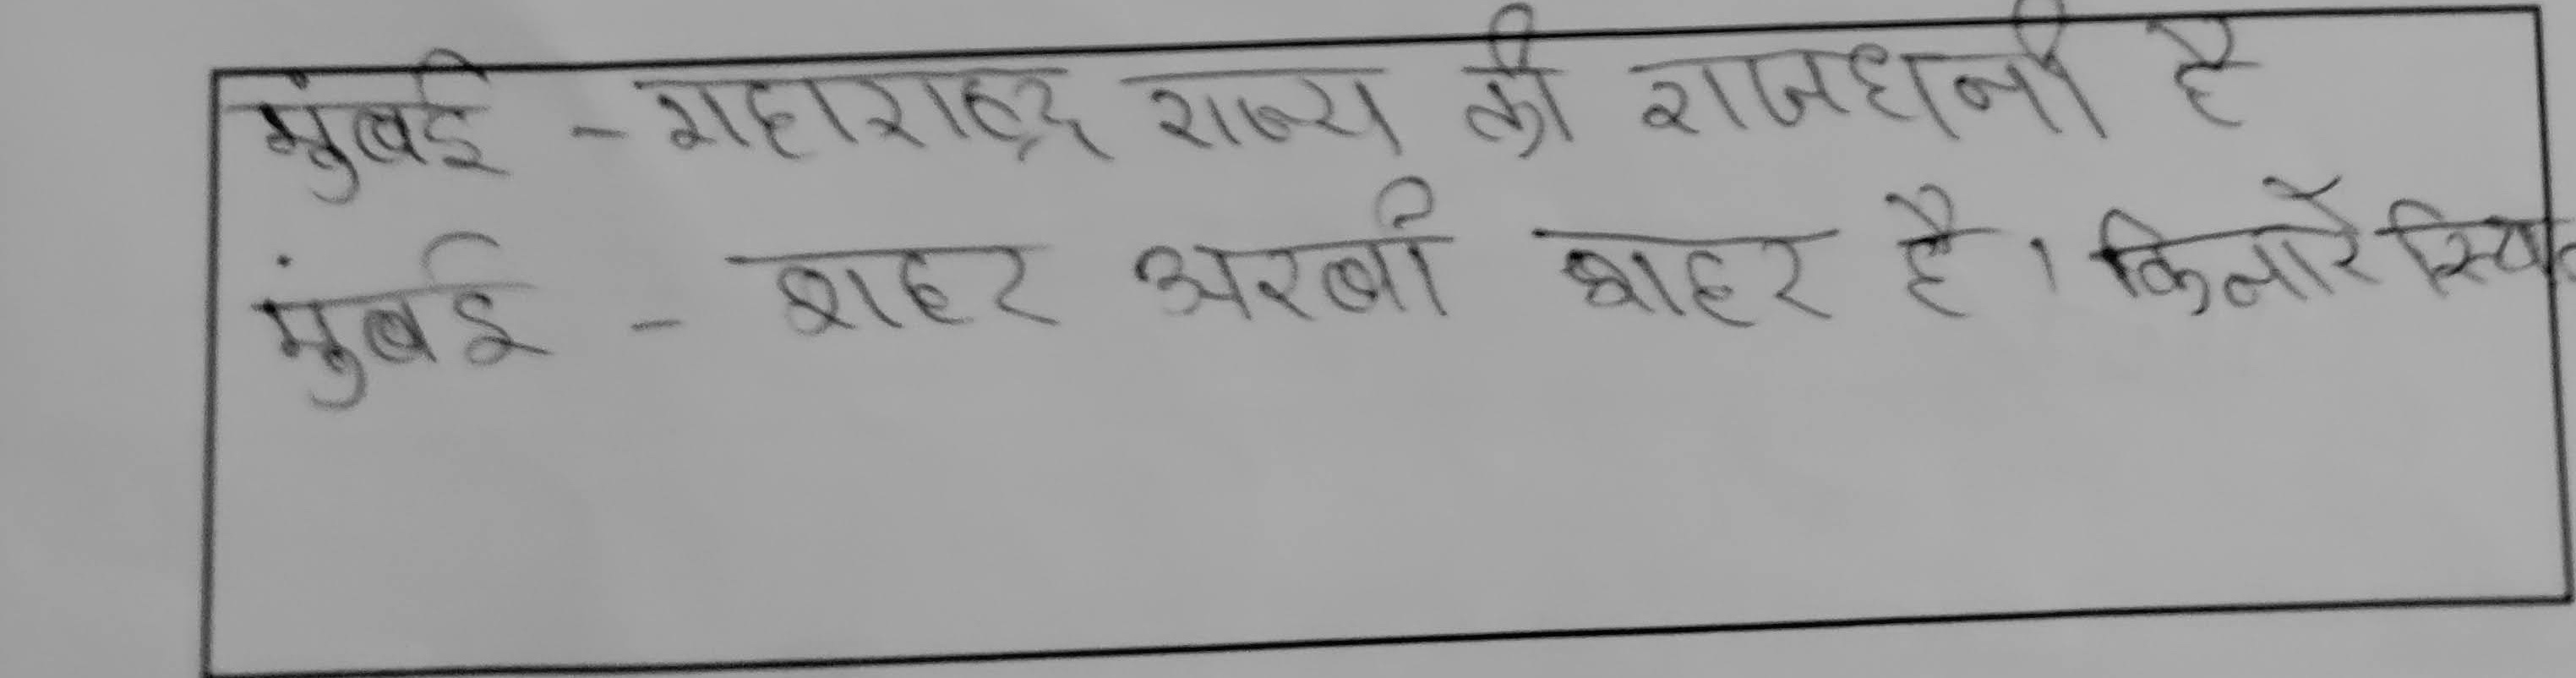 मुंबई - महाराष्ट्र राज्य की राजधानी है
मुंबई - शहर अरबी शहर है । किनारे स्थित